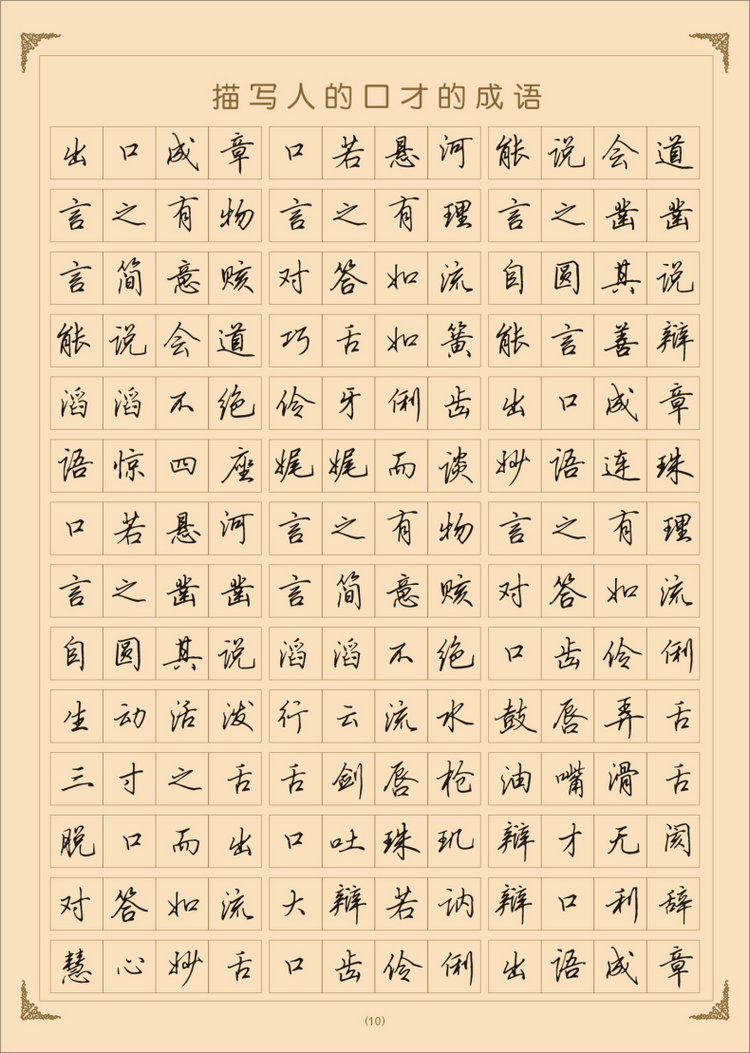 描写人的口才的成语
出口成章 口若悬河 能说会道
言之有物 言之有理 言之凿凿
言简意赅 对答如流 自圆其说
能说会道 巧舌如簧 能言善辩
滔滔不绝 伶牙俐齿 出口成章
语惊四座 娓娓而谈 妙语连珠
口若悬河 言之有物 言之有理
言之凿凿 言简意赅 对答如流
自圆其说 滔滔不绝 口齿伶俐
生动活泼 行云流水 鼓唇弄舌
三寸之舌 舌剑唇枪 油嘴滑舌
脱口而出 口吐珠玑 辩才无阂
对答如流 大辩若讷 辩口利辞
慧心妙舌 口齿伶俐 出语成章
(10)